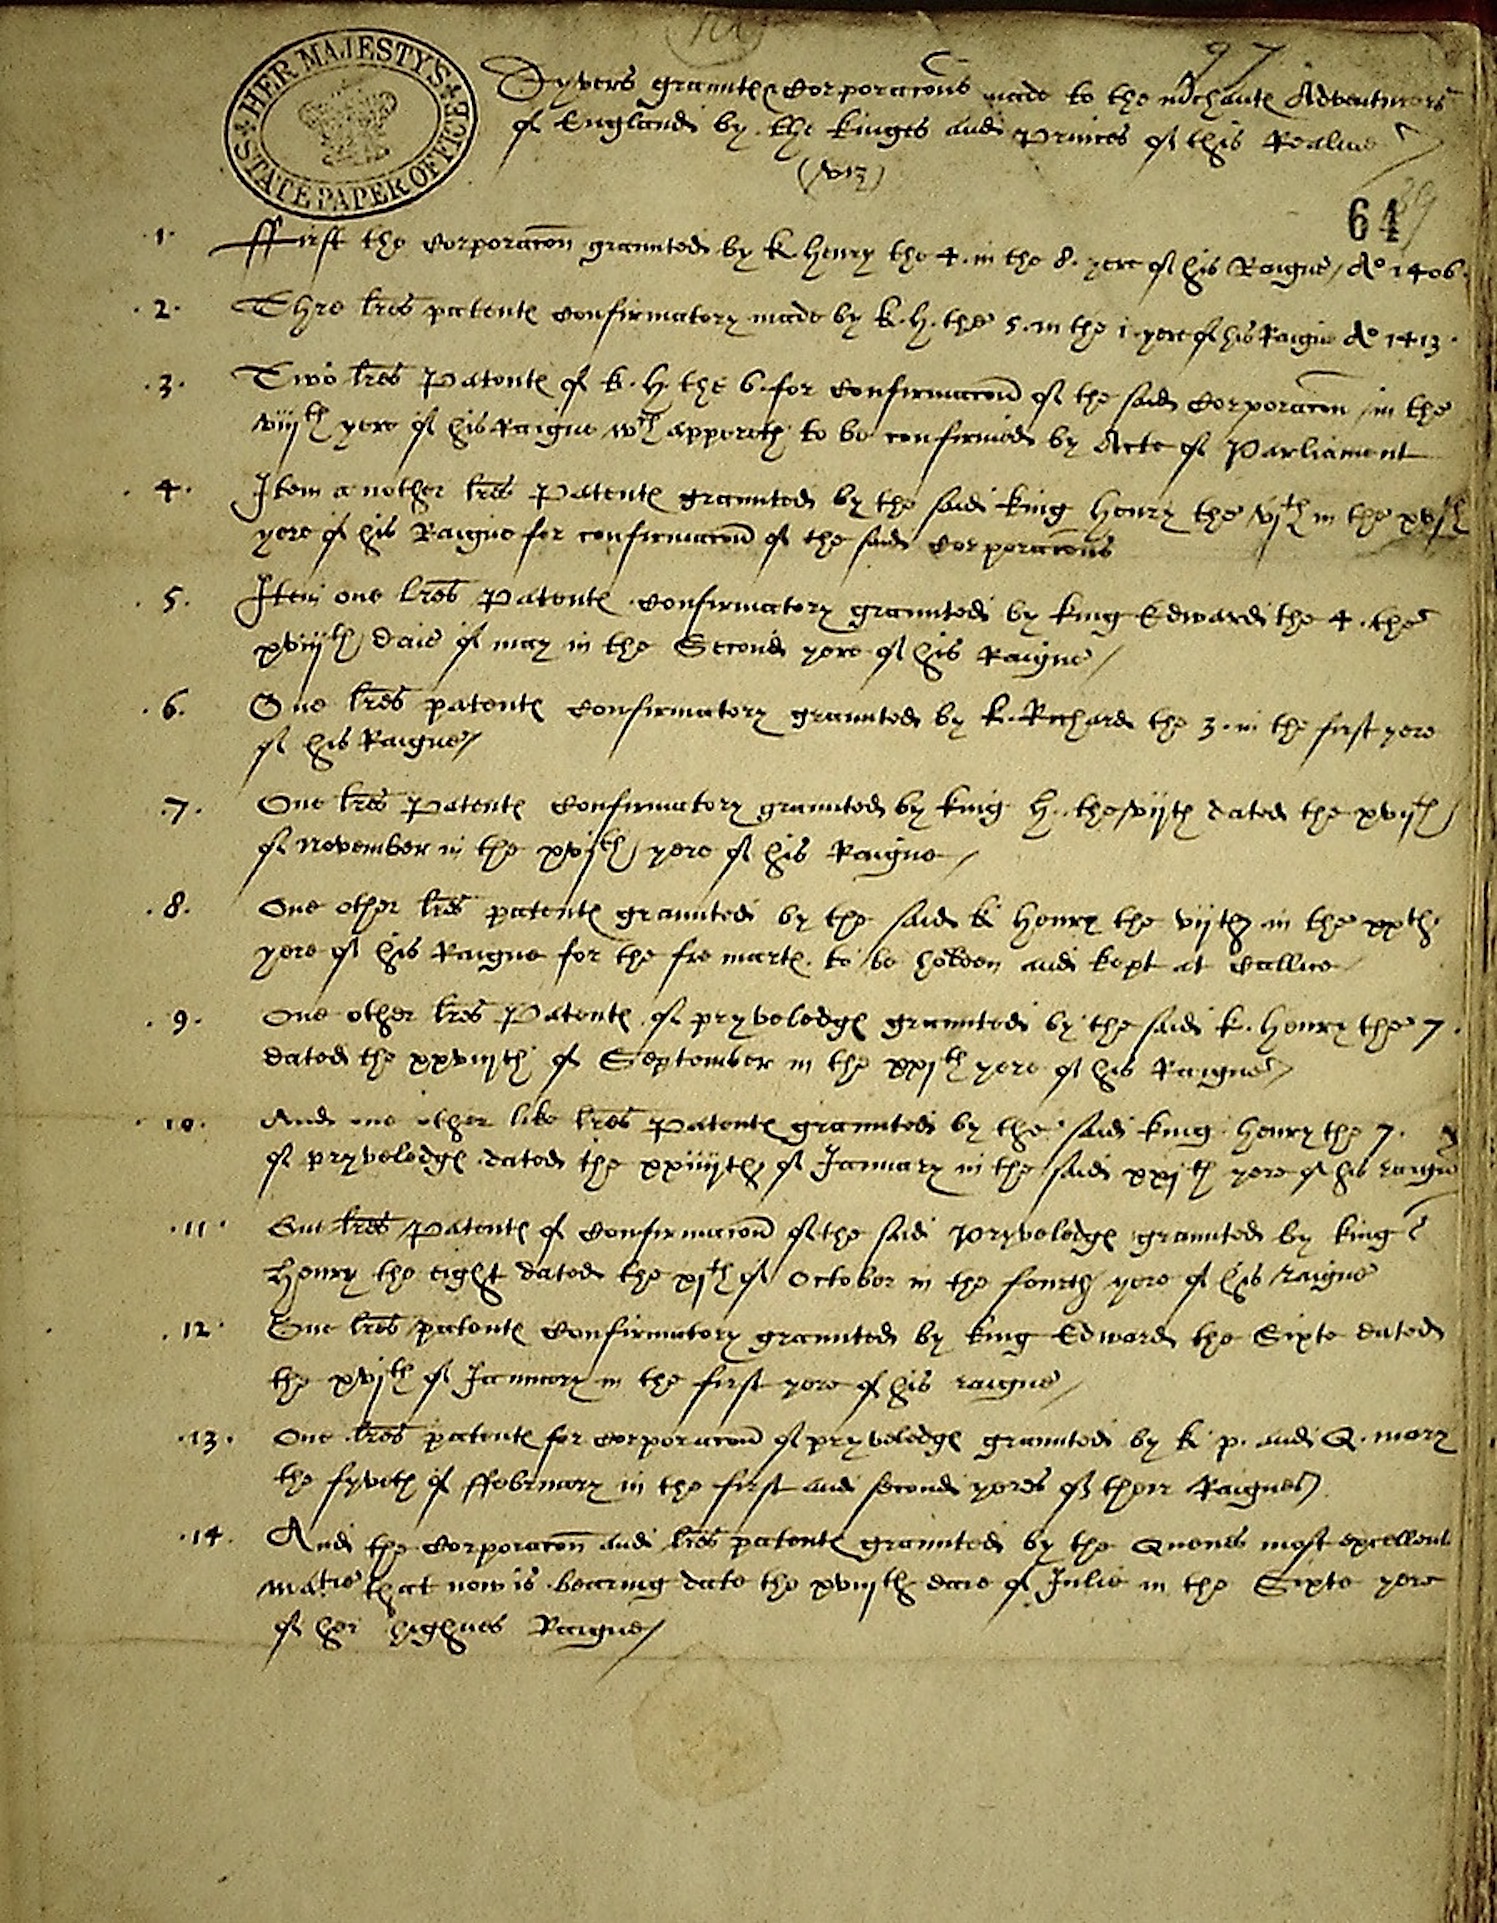 97
HER MAJESTY'S
STATE PAPER OFFICE
Dyvers graunts Corporacōns made to the mrchauntes Adventurers
of England by the Kinges and Princes of this Realme
(viz)
64
1. ffirst the Corporacōn graunted by K. Henry the 4. in the 8. yere of his Raigne / Ao 1406.
2. Thre lrēs patentes Confirmatory made by K. H. the 5. in the i. yere of his Raigne Ao 1413.
3. Two lrēs Patentes of K. H. the 6. for Confirmacoun of the said Corporacōn in the
viijth yere of his Raigne wch appereth to be confirmed by Acte of Parliament
4. Item another lrēs Patentes graunted by the said king Henry the vjth in the xvjth
yere of his Raigne for confirmacoun of the said Corporacōns
5. Item one lrēs Patentes Confirmatory graunted by king Edward the 4. the
xviijth daie of may in the Second yere of his Raigne /
6. One lrēs patentes Confirmatory graunted by K. Richard the 3. in the first yere
of his Raigne /
7. One lrēs Patentes Confirmatory graunted by king H. the vijth dated the xvijth
of November in the xvjth yere of his Raigne /
8. One other lrēs patentes graunted by the said K Henry the vijth in the xxth
yere of his Raigne for the fre marte to be holden and kept at Callice
9. One other lrēs Patentes of pryveledges graunted by the said K. Henry the 7.
dated the xxviijth of September in the xxjth yere of his Raigne
10. And one other like lrēs Patentes graunted by the said king Henry the 7.
of pryveledges dated the xxiiijth of January in the said xxjth yere of his raigne
11. One lrēs Patentes of Confirmacoun of the said Pryveledges graunted by king
Henry the eight dated the xjth of October in the fourth yere of his raigne
12. One lrēs patentes Confirmatory graunted by king Edward the Sixte dated
the xvjth of January in the first yere of his raigne /
13. One lrēs patentes for Corporacoun of pryveledges graunted by K. p. and Q. mary
the fyvth of ffebruary in the first and second yeres of their Raignes
14. And the Corporacōn and lrēs patentes graunted by the Quenes most excellent
Matie that now is bearing date the xviijth daie of Julie in the Sixte yere
of her highnes Raigne /